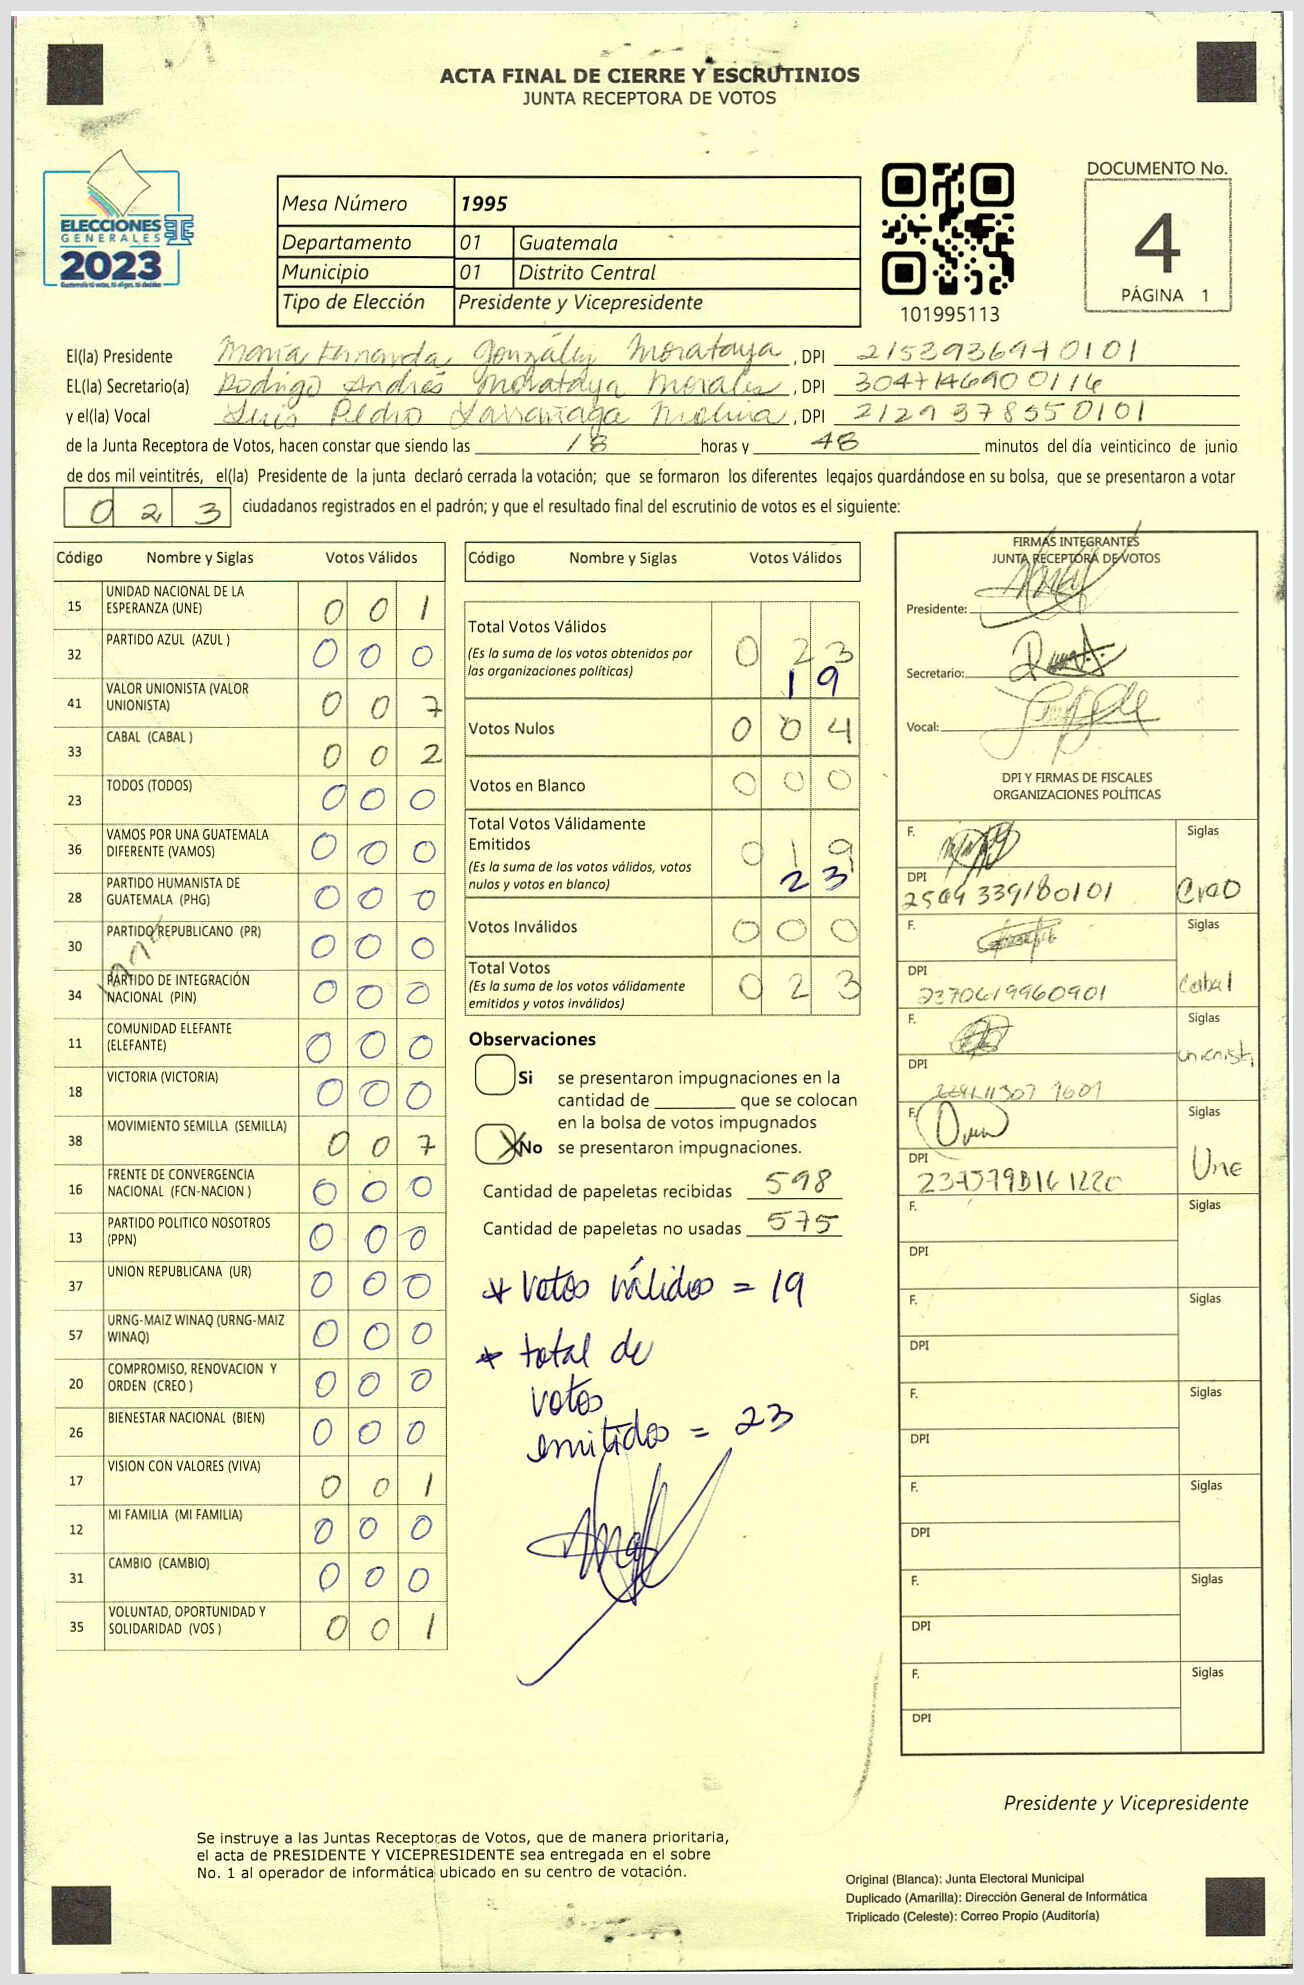 ACTA FINAL DE CIERRE Y ESCRUTINIOS
JUNTA RECEPTORA DE VOTOS
ELECCIONES
GENERALES
2023
Mesa Número 1995
Departamento 01 Guatemala
Municipio 01 Distrito Central
Tipo de Elección Presidente y Vicepresidente
101995113
DOCUMENTO No.
4
PÁGINA 1
El(la) Presidente María Fernanda González Morataya, DPI
EL(la) Secretario(a) Rodrigo Andrés Morataya Morales, DPI
y el(la) Vocal Luis Pedro Larrañaga Molina, DPI 2129378550101
de la Junta Receptora de Votos, hacen constar que siendo las 18 horas y 48 minutos del día veinticinco de junio
de dos mil veintitrés, el(la) Presidente de la junta declaró cerrada la votación; que se formaron los diferentes legajos guardándose en su bolsa, que se presentaron a votar
023 ciudadanos registrados en el padrón; y que el resultado final del escrutinio de votos es el siguiente:
Código Nombre y Siglas Votos Válidos
15 UNIDAD NACIONAL DE LA ESPERANZA (UNE) 0 0 1
32 PARTIDO AZUL (AZUL ) 0 0 0
41 VALOR UNIONISTA (VALOR UNIONISTA) 0 0 7
33 CABAL (CABAL ) 0 0 2
23 TODOS (TODOS) 0 0 0
36 VAMOS POR UNA GUATEMALA DIFERENTE (VAMOS) 0 0 0
28 PARTIDO HUMANISTA DE GUATEMALA (PHG) 0 0 0
30 PARTIDO REPUBLICANO (PR) 0 0 0
34 PARTIDO DE INTEGRACIÓN NACIONAL (PIN) 0 0 0
11 COMUNIDAD ELEFANTE (ELEFANTE) 0 0 0
18 VICTORIA (VICTORIA) 0 0 0
38 MOVIMIENTO SEMILLA (SEMILLA) 0 0 7
16 FRENTE DE CONVERGENCIA NACIONAL (FCN-NACION ) 0 0 0
13 PARTIDO POLITICO NOSOTROS (PPN) 0 0 0
37 UNION REPUBLICANA (UR) 0 0 0
57 URNG-MAIZ WINAQ (URNG-MAIZ WINAQ) 0 0 0
20 COMPROMISO, RENOVACION Y ORDEN (CREO ) 0 0 0
26 BIENESTAR NACIONAL (BIEN) 0 0 0
17 VISION CON VALORES (VIVA) 0 0 1
12 MI FAMILIA (MI FAMILIA) 0 0 0
31 CAMBIO (CAMBIO) 0 0 0
35 VOLUNTAD, OPORTUNIDAD Y SOLIDARIDAD (VOS ) 0 0 1
Código Nombre y Siglas Votos Válidos
Total Votos Válidos 0 2 3
(Es la suma de los votos obtenidos por
las organizaciones políticas) 1 9
Votos Nulos 0 0 4
Votos en Blanco 0 0 0
Total Votos Válidamente
Emitidos 0 1 9
(Es la suma de los votos válidos, votos
nulos y votos en blanco) 2 3
Votos Inválidos 0 0 0
Total Votos
(Es la suma de los votos válidamente
emitidos y votos inválidos) 0 2 3
Observaciones
Si se presentaron impugnaciones en la
cantidad de ________ que se colocan
en la bolsa de votos impugnados
X No se presentaron impugnaciones.
Cantidad de papeletas recibidas 598
Cantidad de papeletas no usadas 575
* Votos válidos = 19
* total de
votos
emitidos = 23
FIRMAS INTEGRANTES
JUNTA RECEPTORA DE VOTOS
Presidente:
Secretario:
Vocal:
DPI Y FIRMAS DE FISCALES
ORGANIZACIONES POLÍTICAS
F. Siglas
DPI Creo
F. Siglas
DPI 2370619960901 Cabal
F. Siglas
DPI unionista
F. Siglas
DPI Une
F. Siglas
DPI
F. Siglas
DPI
F. Siglas
DPI
F. Siglas
DPI
F. Siglas
DPI
F. Siglas
DPI
Presidente y Vicepresidente
Se instruye a las Juntas Receptoras de Votos, que de manera prioritaria,
el acta de PRESIDENTE Y VICEPRESIDENTE sea entregada en el sobre
No. 1 al operador de informática ubicado en su centro de votación.
Original (Blanca): Junta Electoral Municipal
Duplicado (Amarilla): Dirección General de Informática
Triplicado (Celeste): Correo Propio (Auditoría)